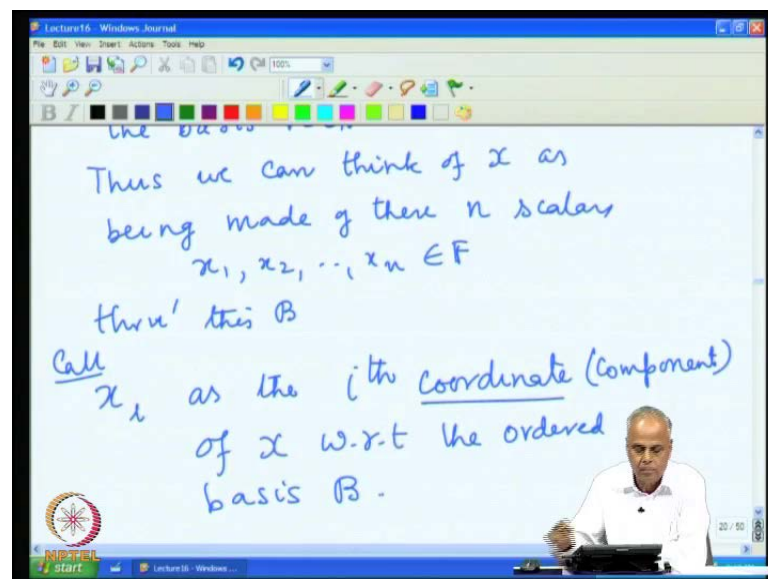 Lecture16 - Windows Journal
File Edit View Insert Actions Tools Help
100%
B I
the basis
Thus we can think of x as
being made of these n scalars
x₁, x₂, ..., xₙ ∈ F
thru' this B
Call
xᵢ as the iᵗʰ coordinate (component)
of x w.r.t the ordered
basis B.
20 / 50
NPTEL
start Lecture16 - Windows ...